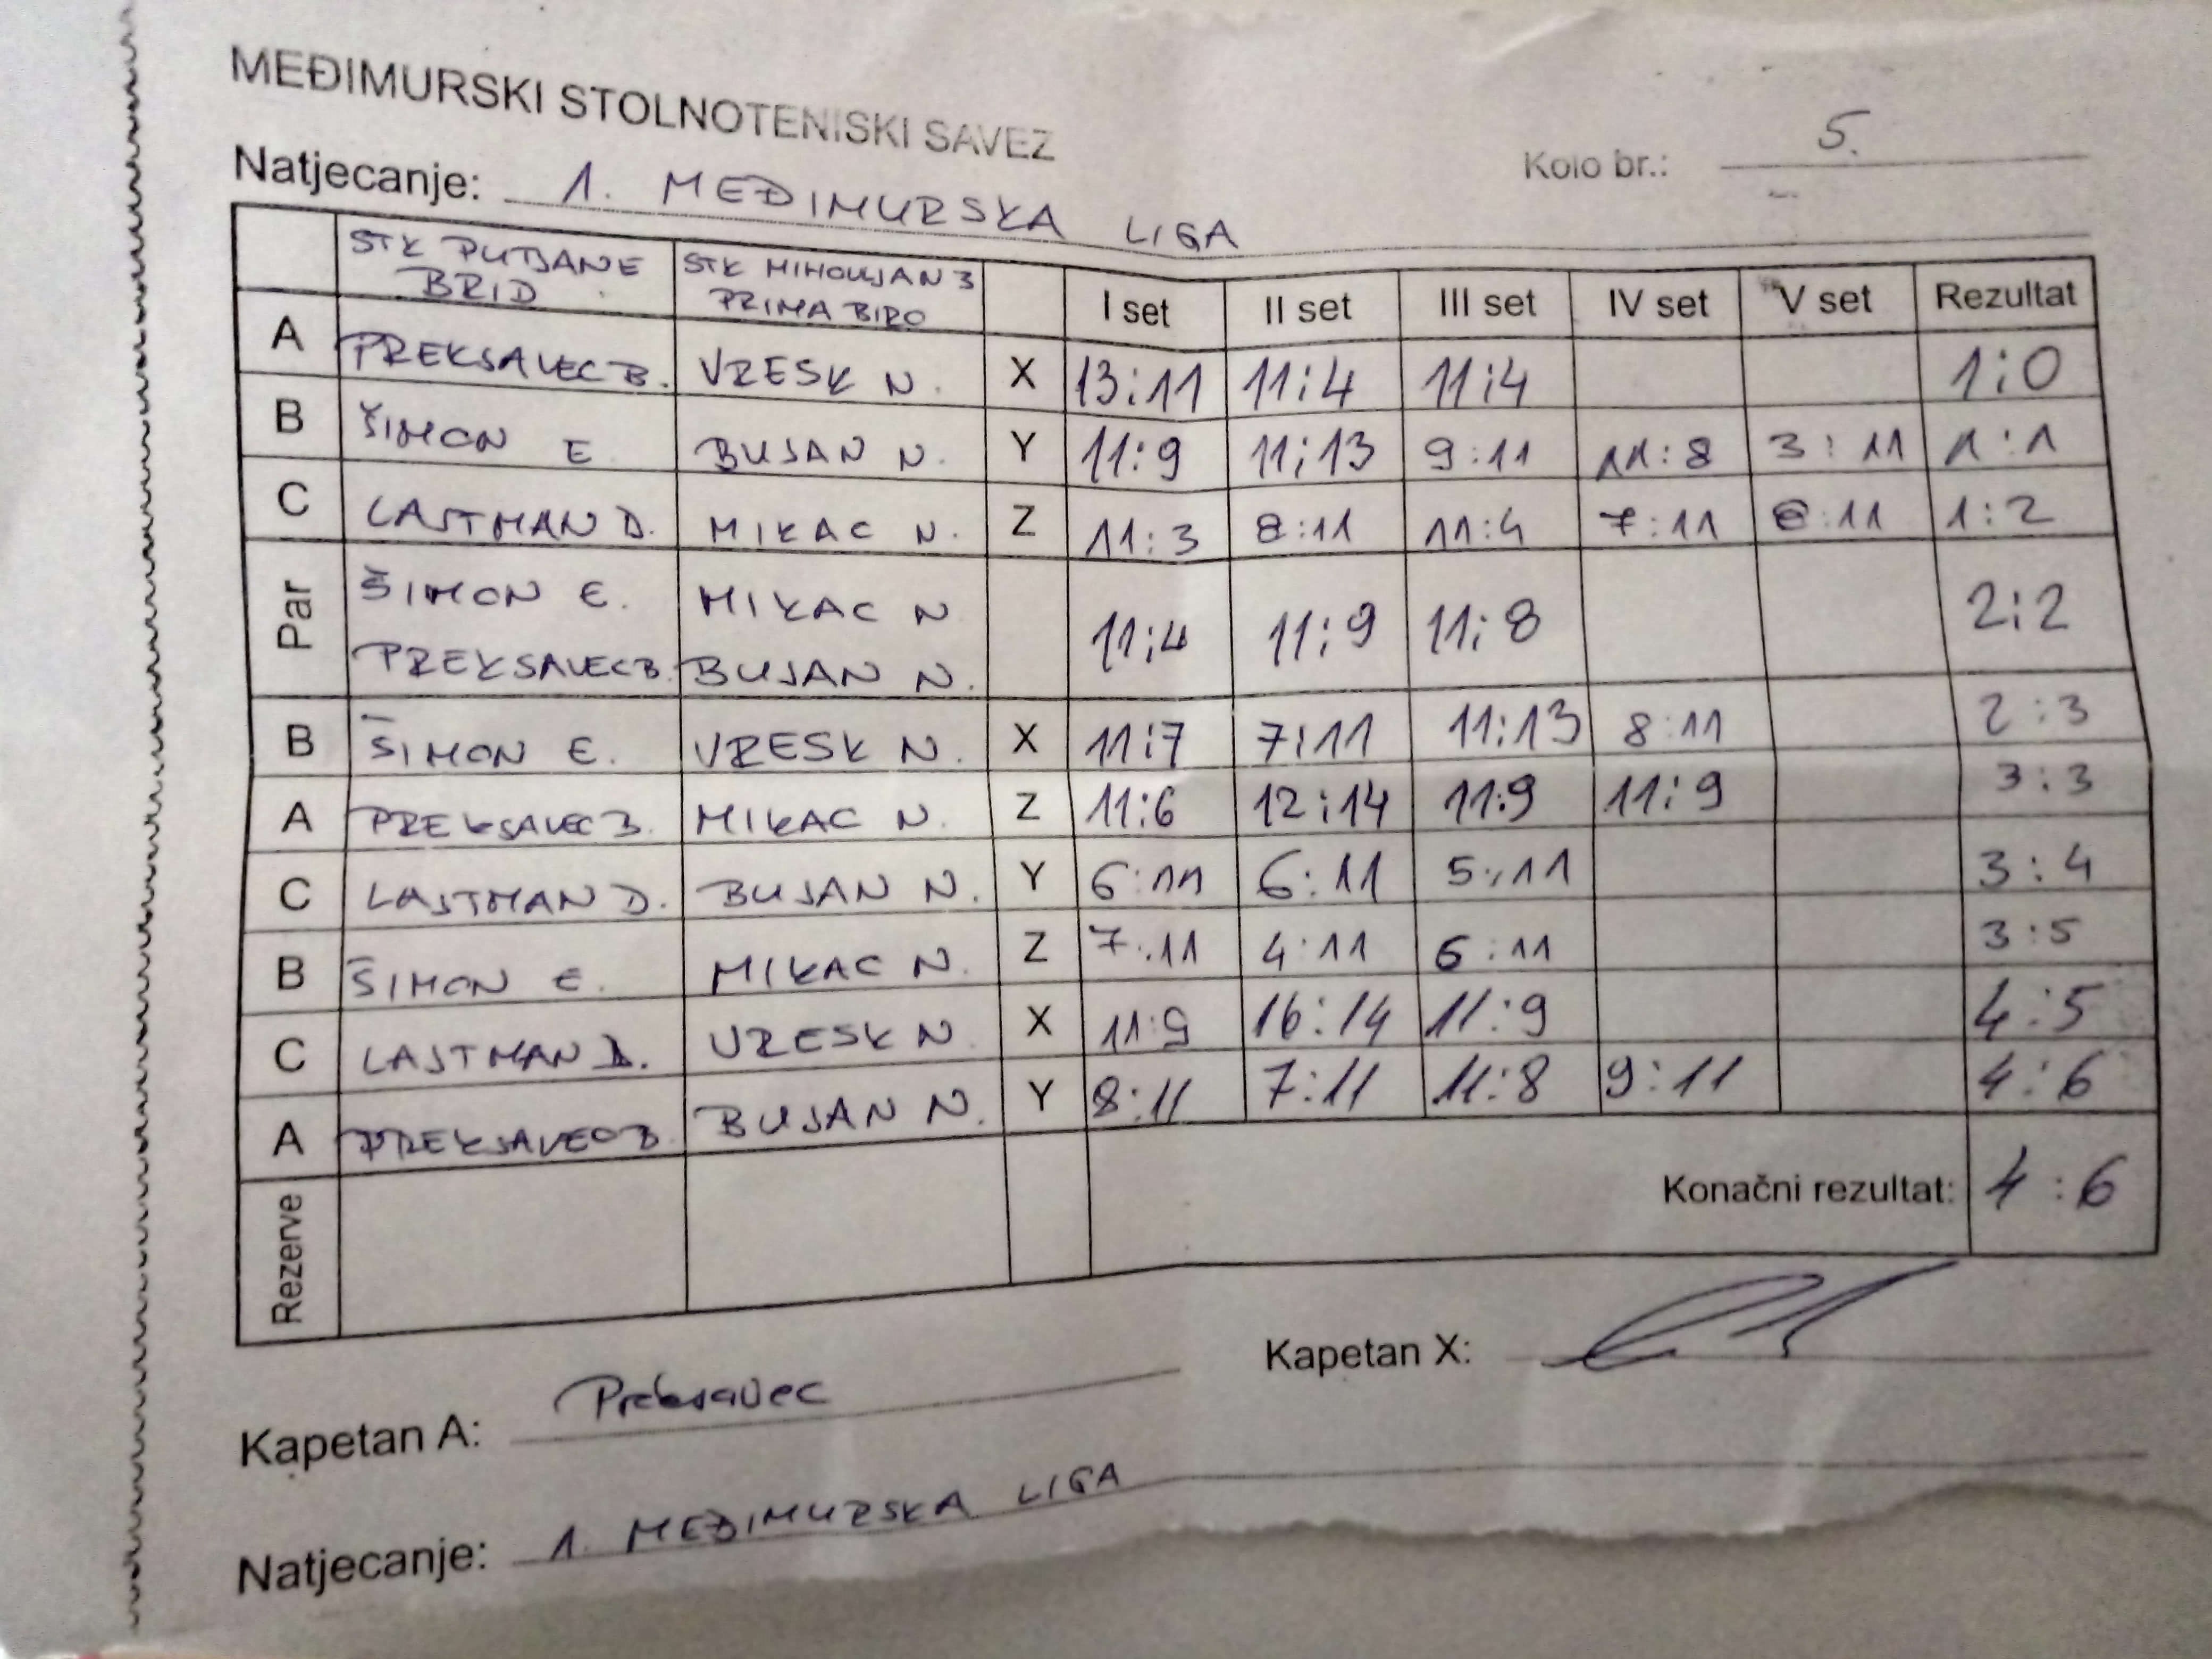 MEĐIMURSKI STOLNOTENISKI SAVEZ
Natjecanje: 1. MEĐIMURSKA LIGA
Kolo br.: 5.
STK PUTJANE BRID STK MIHOVLJAN 3 PRIMA BIRO I set II set III set IV set V set Rezultat
A PREKSAVEC B. VRESK N. X 13:11 11:4 11:4 1:0
B ŠIMON E. BUJAN N. Y 11:9 11:13 9:11 11:8 3:11 1:1
C LAJTMAN D. MIKAC N. Z 11:3 8:11 11:4 7:11 8:11 1:2
Par ŠIMON E. MIKAC N
PREKSAVEC B. BUJAN N. 11:4 11:9 11:8 2:2
B ŠIMON E. VRESK N. X 11:7 7:11 11:13 8:11 2:3
A PREKSAVEC B. MIKAC N. Z 11:6 12:14 11:9 11:9 3:3
C LAJTMAN D. BUJAN N. Y 6:11 6:11 5:11 3:4
B ŠIMON E. MIKAC N. Z 7:11 4:11 6:11 3:5
C LAJTMAN D. VRESK N X 11:9 16:14 11:9 4:5
A PREKSAVEC B. BUJAN N. Y 8:11 7:11 11:8 9:11 4:6
Rezerve Konačni rezultat: 4:6
Kapetan A: Preksavec Kapetan X:
Natjecanje: 1. MEĐIMURSKA LIGA